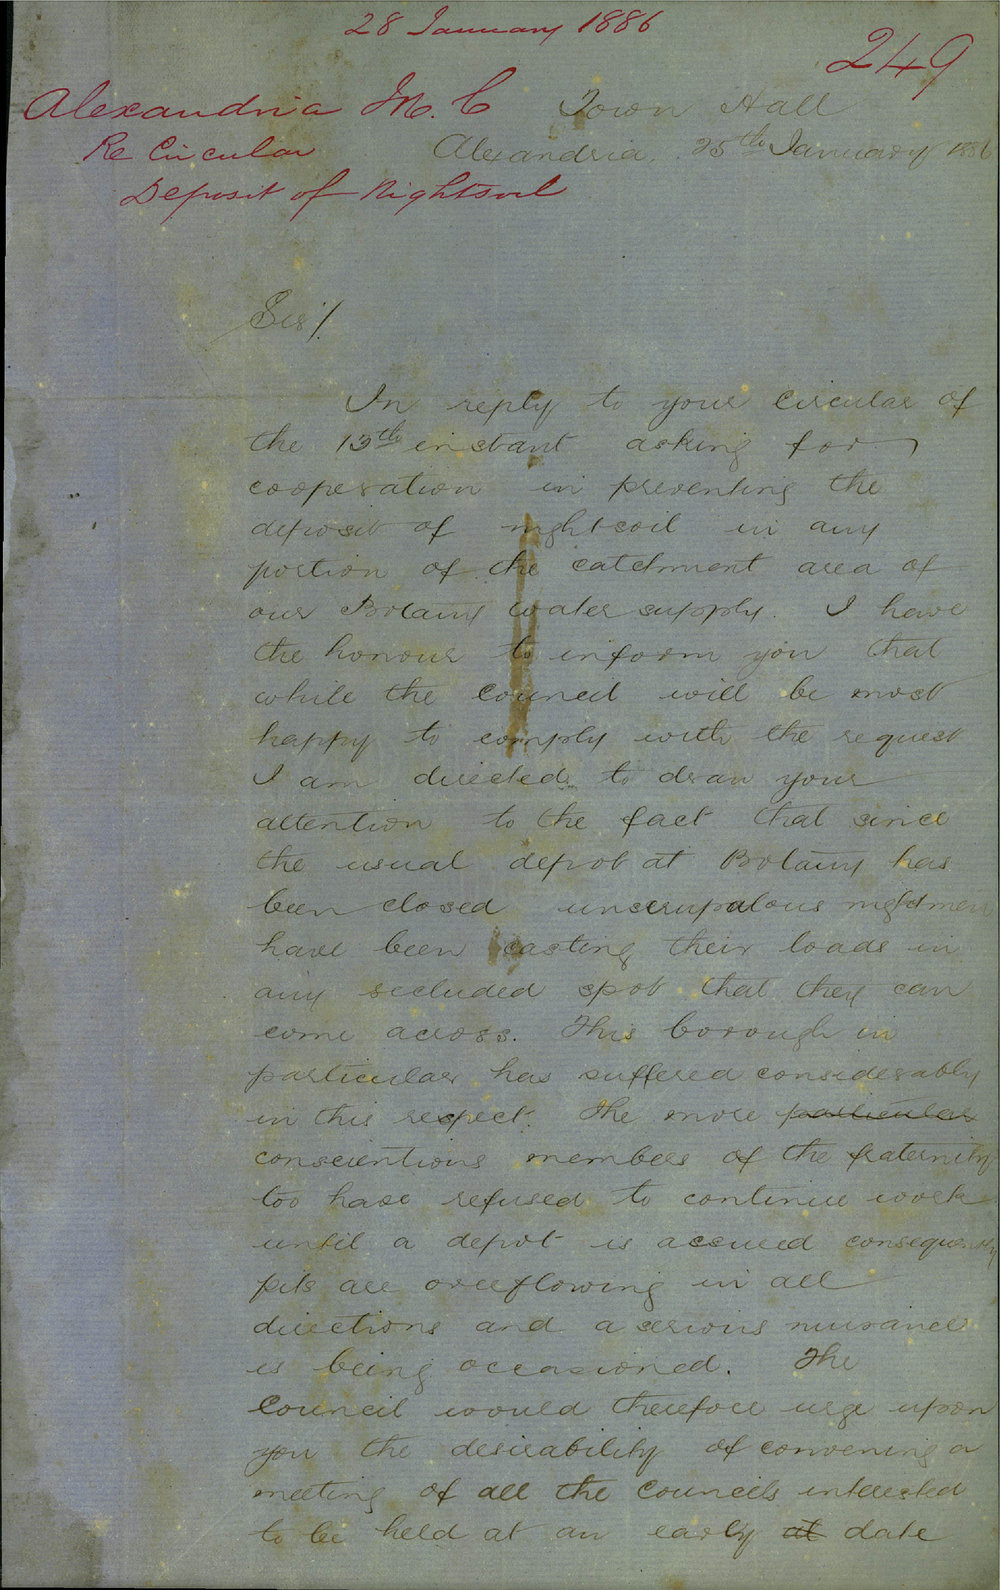 28 January 1886
249
Alexandria M. C
Re Circular
Deposit of Nightsoil
Town Hall
Alexandria, 25th January 1886
Sir/
In reply to your circular of
the 13th instant asking for
cooperation in preventing the
deposit of nightsoil in any
portion of the catchment area of
our Botany water supply. I have
the honour to inform you that
while the Council will be most
happy to comply with the request
I am directed to draw your
attention to the fact that since
the usual depot at Botany has
been closed unscrupulous nightmen
have been casting their loads in
any secluded spot that they can
come across. This borough in
particular has suffered considerably
in this respect. The more particular
conscientious members of the fraternity
too have refused to continue work
until a depot is accured consequently
pits are overflowing in all
directions and a serious nuisance
is being occasioned. The
Council would therefore urge upon
you the desirability of convening a
meeting of all the Councils interested
to be held at an early at date